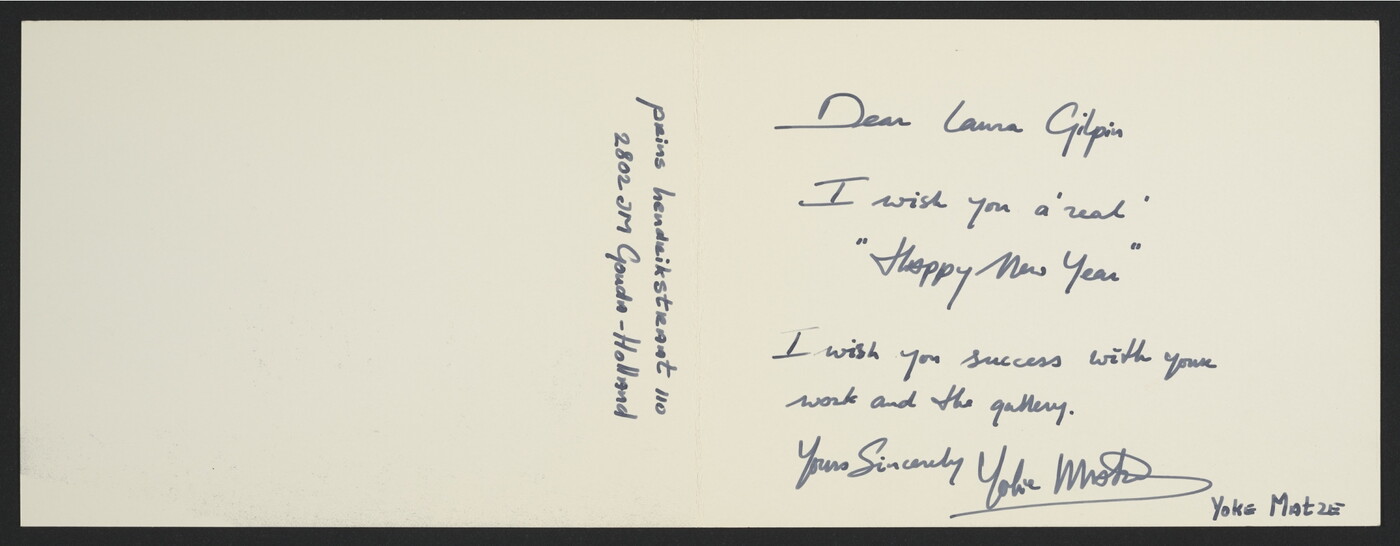 prins hendrikstraat 110
2802 JM Gouda - Holland
Dear Laura Gilpin
I wish you a 'real'
"Happy New Year"
I wish you success with your
work and the gallery.
Yours Sincerely Yoke Matze
Yoke Matze